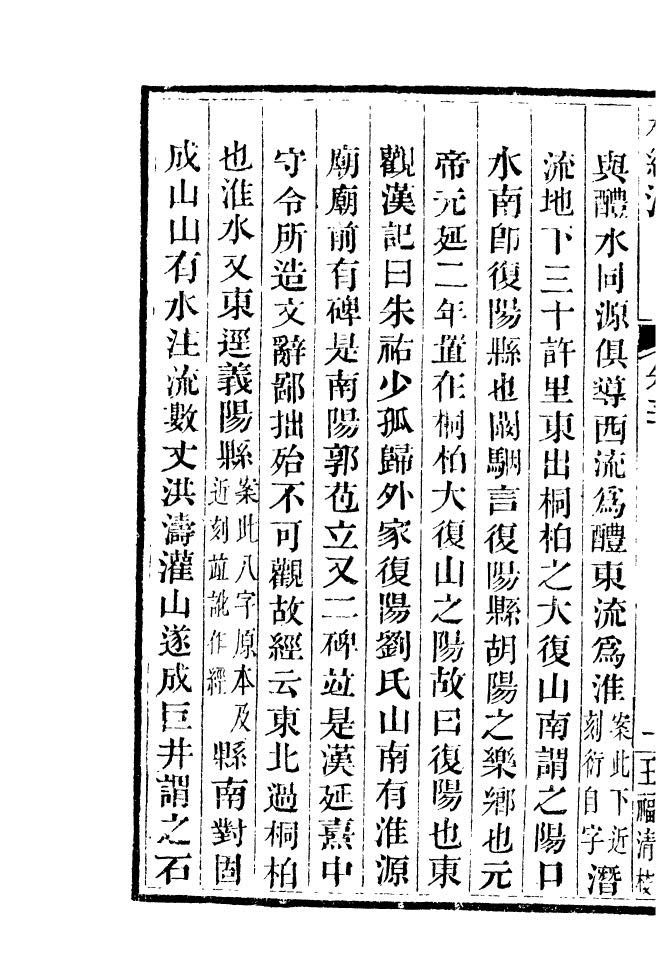 與醴水同源俱導西流爲醴東流爲淮案此下近刻衍自字潛
流地下三十許里東出桐柏之大復山南謂之陽口
水南卽復陽縣也闞駰言復陽縣胡陽之樂鄉也元
帝元延二年置在桐柏大復山之陽故曰復陽也東
觀漢記曰朱祐少孤歸外家復陽劉氏山南有淮源
廟廟前有碑是南陽郭苞立又二碑竝是漢延熹中
守令所造文辭鄙拙殆不可觀故經云東北過桐柏
也淮水又東逕義陽縣案此八字原本及近刻竝訛作經縣南對固
成山山有水注流數丈洪濤灌山遂成巨井謂之石